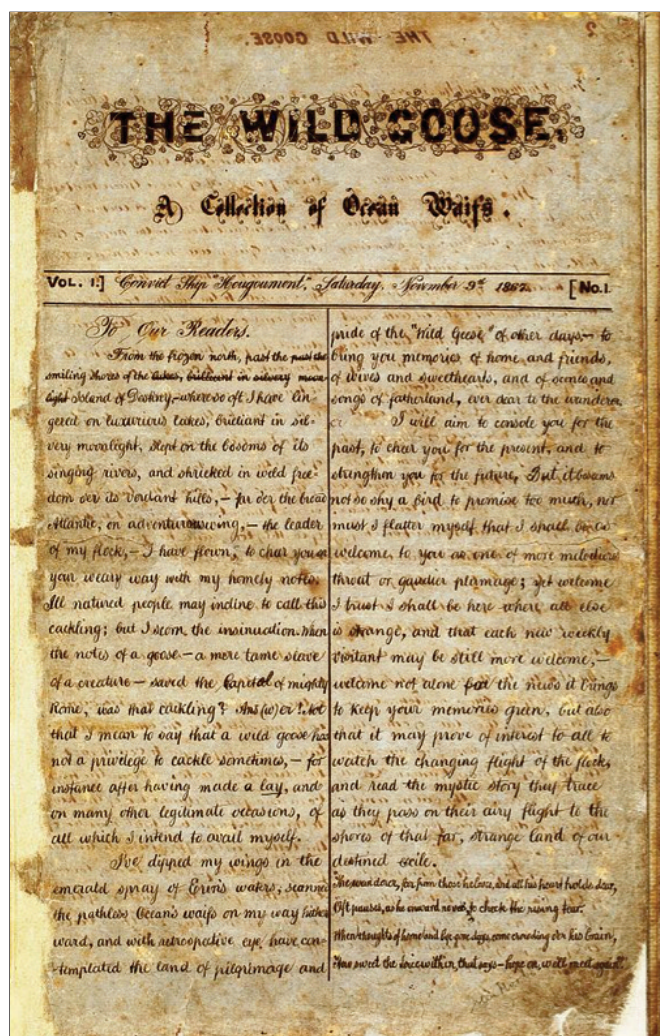 THE WILD GOOSE.
THE WILD GOOSE.
A Collection of Ocean Waifs.
Vol. I.] Convict Ship "Hougoumont", Saturday, November 9th 1867. [No.1.
To Our Readers.
From the frozen north, past the
smiling shores of the lakes, brilliant in silvery moon-
light Island of Destiny,—where so oft I have lin-
gered on luxurious lakes, briliant in sil-
very moonlight, slept on the bosoms of its
singing rivers, and shrieked in wild free-
dom o'er its verdant hills,— far o'er the broad
Atlantic, on adventurous wing,— the leader
of my flock,— I have flown, to cheer you on
your weary way with my homely notes.
Ill natured people may incline to call this
cackling; but I scorn the insinuation. When
the notes of a goose — a mere tame slave
of a creature — saved the Capitol of mighty
Rome, was that cackling? Ans(w)er! Not
that I mean to say that a wild goose has
not a privilege to cackle sometimes,— for
instance after having made a lay, and
on many other legitimate occasions, of
all which I intend to avail myself.
I've dipped my wings in the
emerald spray of Erin's waters, scanned
the pathless Ocean's waifs on my way hither
ward, and with retrospective eye, have con-
templated the land of pilgrimage and
pride of the "Wild Geese" of other days,— to
bring you memories of home and friends,
of wives and sweethearts, and of scenes and
songs of fatherland, ever dear to the wanderer.
I will aim to console you for the
past, to cheer you for the present, and to
strengthen you for the future. But it beseems
not so shy a bird to promise too much, nor
must I flatter myself that I shall be as
welcome to you as one of more melodious
throat or gaudier plumage; yet welcome
I trust I shall be here where all else
is strange, and that each new weekly
visitant may be still more welcome,—
welcome not alone for the news it brings
to keep your memories green, but also
that it may prove of interest to all to
watch the changing flight of the flock,
and read the mystic story they trace
as they pass on their airy flight to the
shores of that far, strange land of our
destined exile.
The wanderer, far from those he loves, and all his heart holds dear,
Oft pauses, as he onward moves, to check the rising tear.
When thoughts of home and bye-gone days, come crowding o'er his brain,
How sweet the voice within, that says— hope on, we'll meet again".